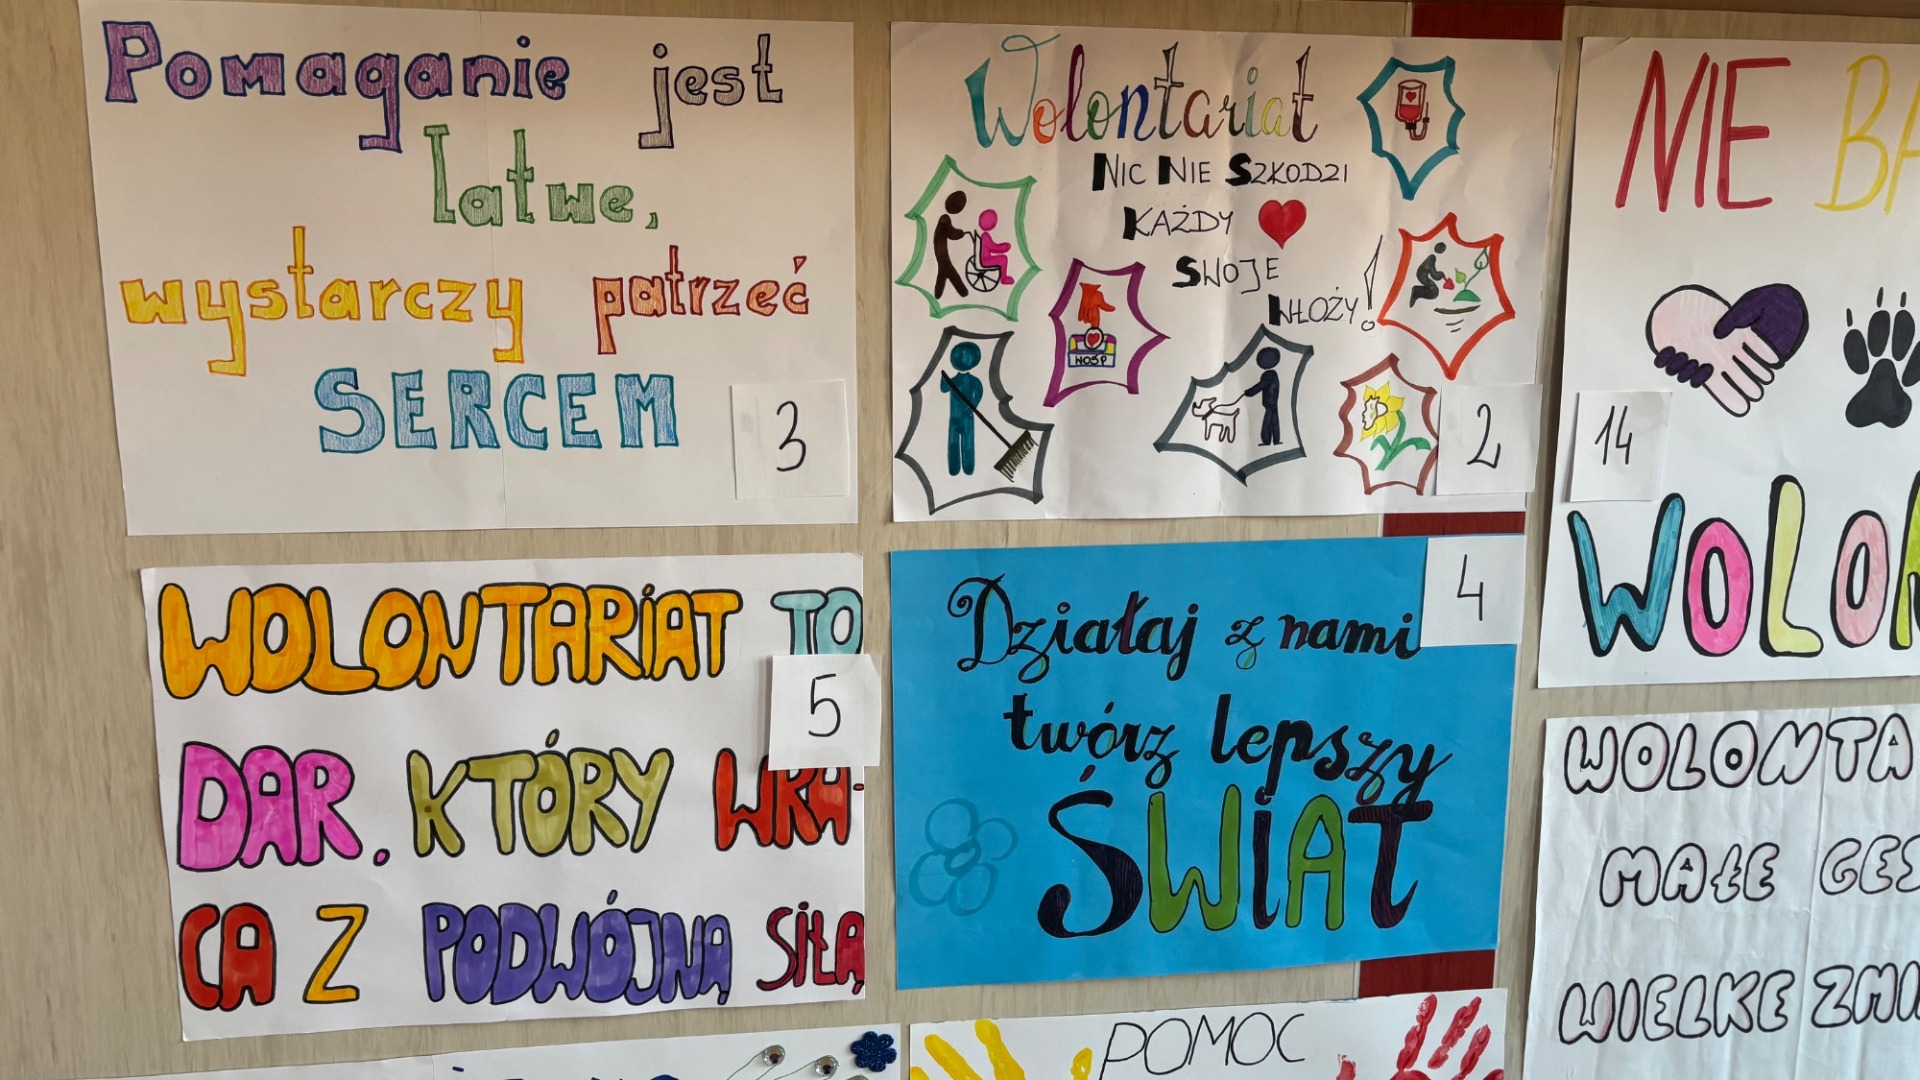 Pomaganie jest
łatwe,
wystarczy patrzeć
SERCEM
3
Wolontariat
NIC NIE SZKODZI
KAŻDY
SWOJE
WŁOŻY!
WOŚP
2
NIE
14
WOLONTARIAT TO
DAR. KTÓRY WRA-
CA Z PODWÓJNĄ SIŁĄ
5
Działaj z nami
twórz lepszy
ŚWIAT
4
WOLONTA
MAŁE GES
WIELKE ZMI
POMOC